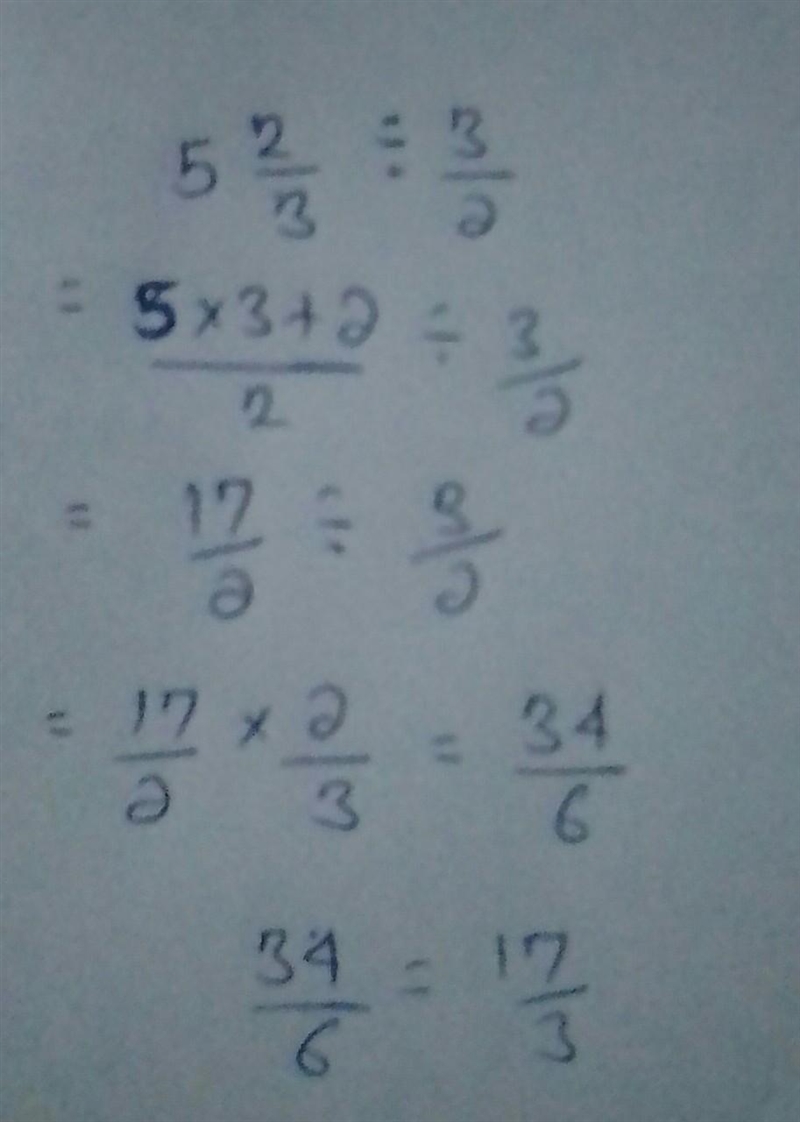 5 2/3 ÷ 3/2
= (5 × 3 + 2)/2 ÷ 3/2
= 17/2 ÷ 3/2
= 17/2 × 2/3 = 34/6
34/6 = 17/3